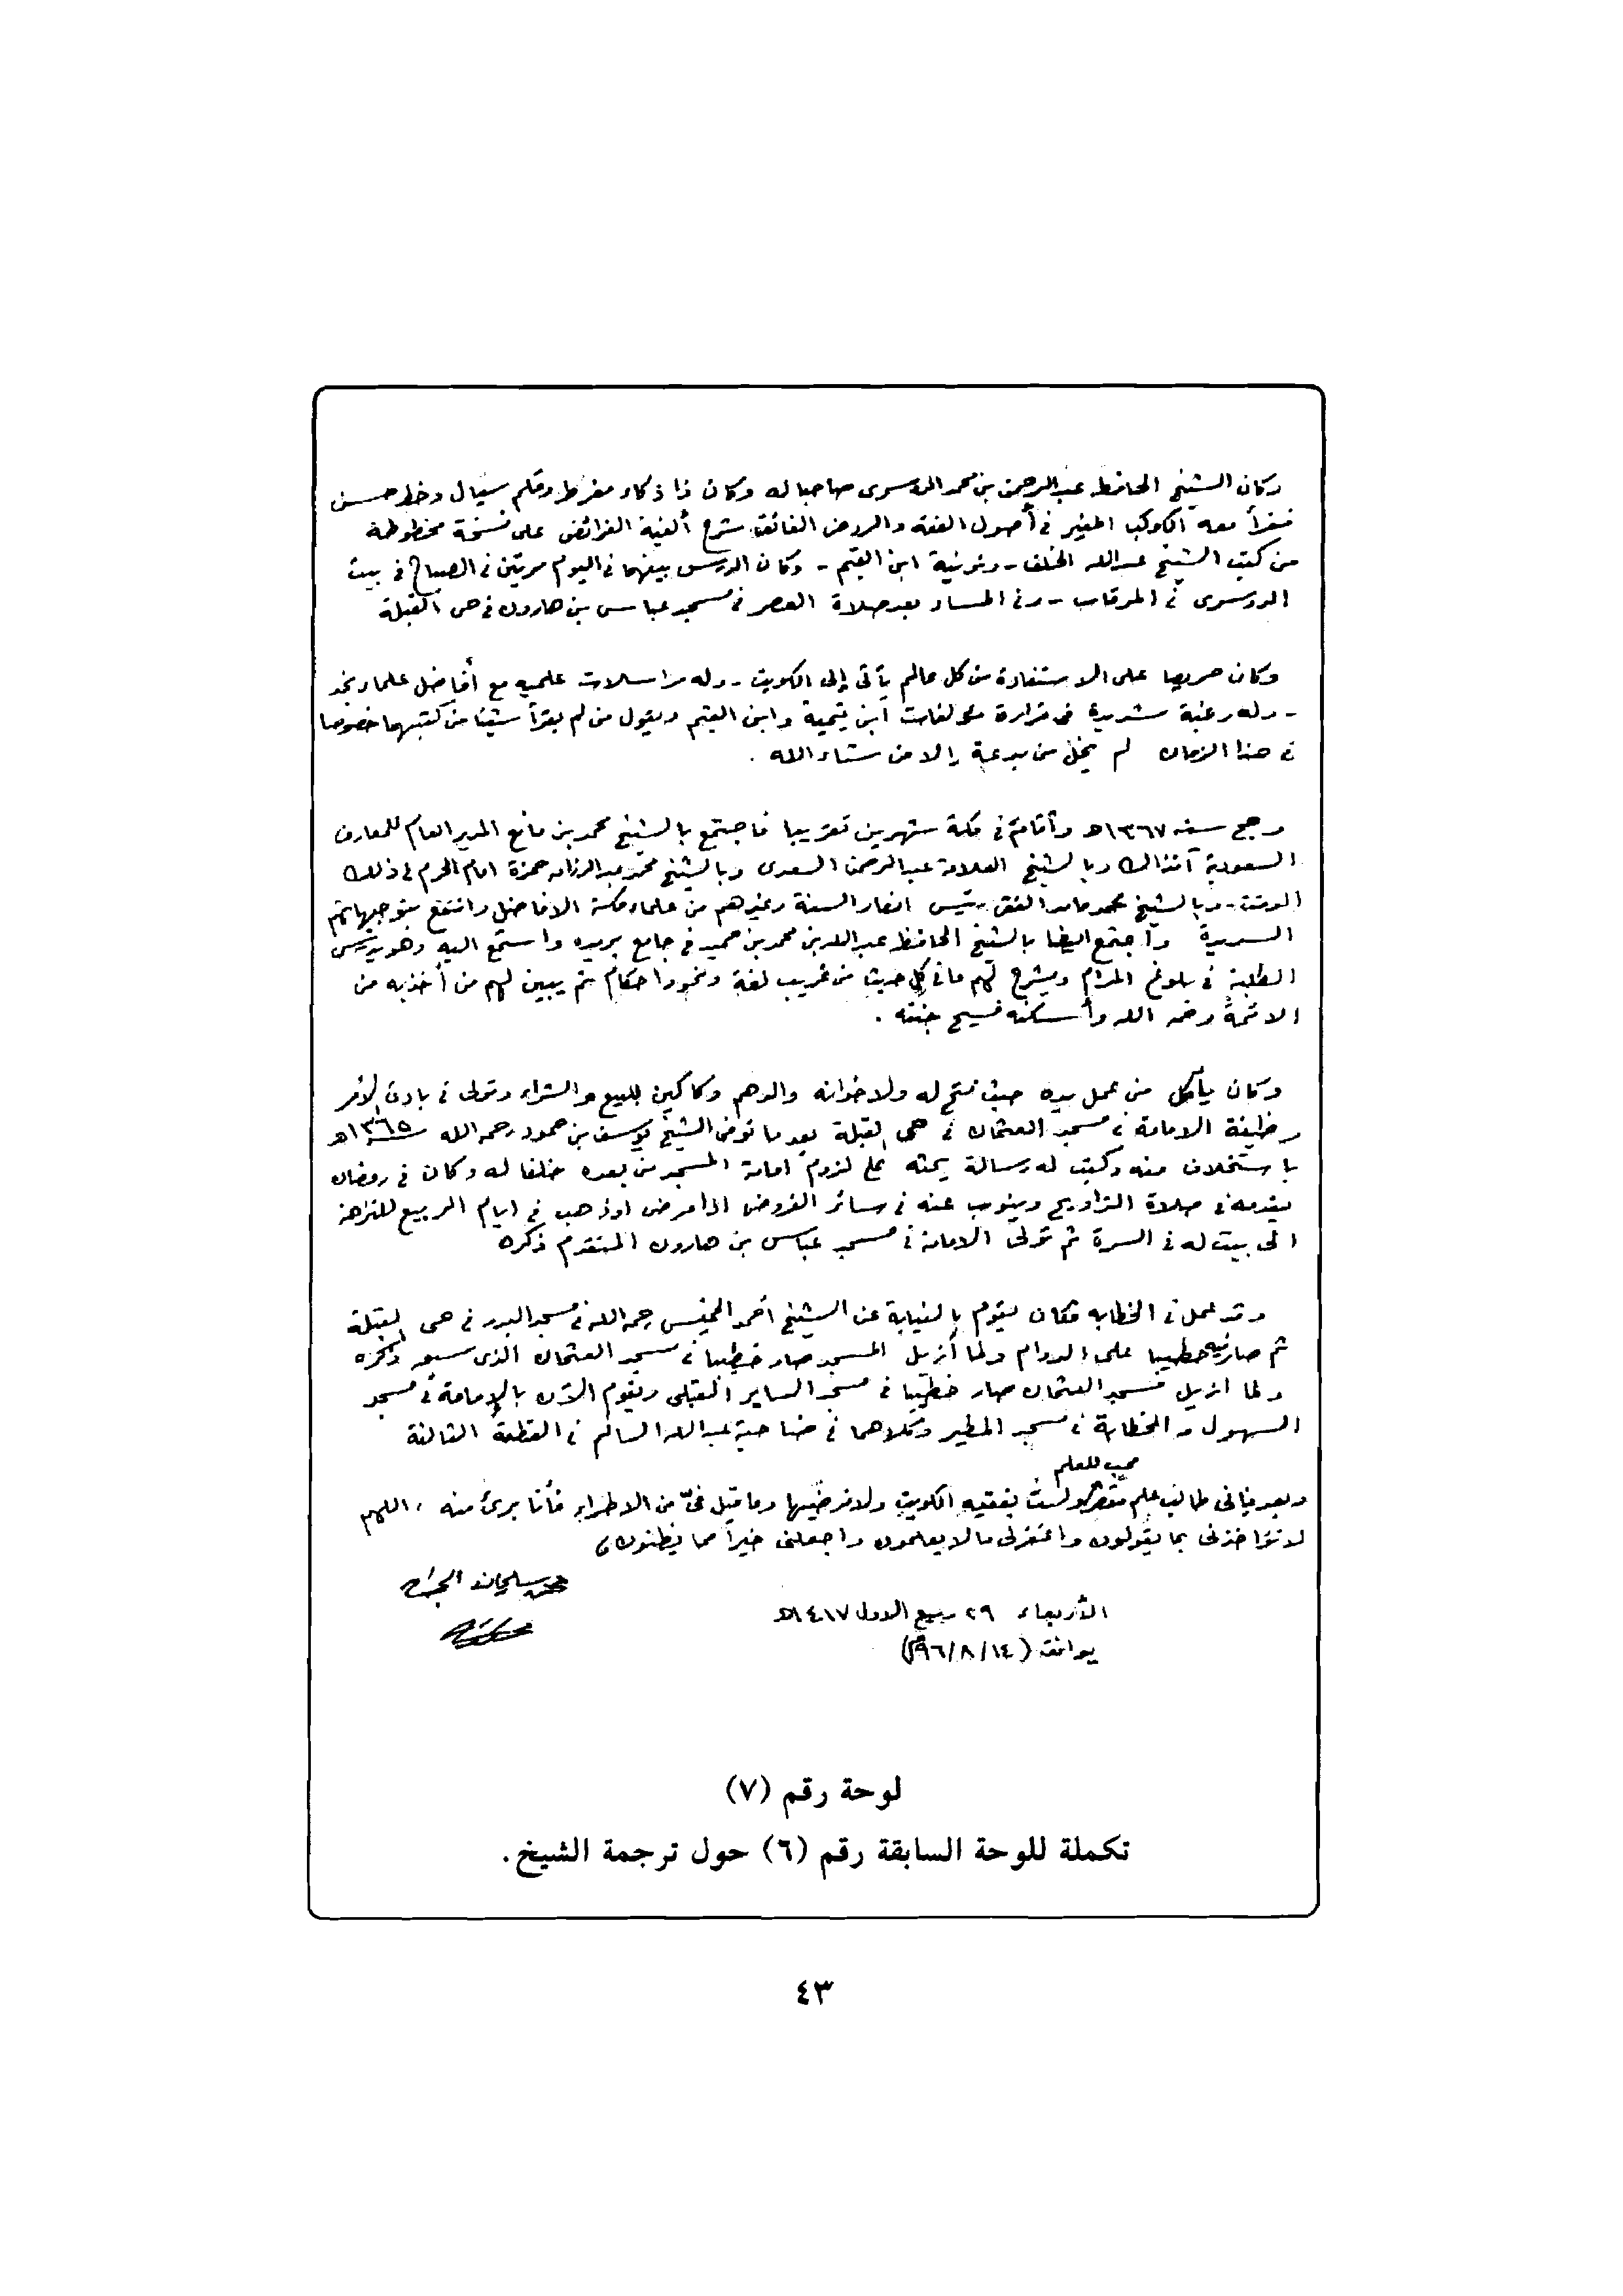 وكان الشيخ الحافظ عبدالرحمن بن محمد الدوسرى صاحبا له وكان ذا ذكاء مفرط وقلم سيال وخط حسن
فقرأ معه الكوكب المنير فى أصول الفقه والروض الفائق شرح ألفية الفرائض على نسخة مخطوطة
من كتب الشيخ عبدالله الخلف - ونونية ابن القيم - وكان الدرس بينهما فى اليوم مرتين فى الصباح فى بيت
الدوسرى فى المرقاب - وفى المساء بعد صلاة العصر فى مسجد عباس بن هارون فى حى القبلة
وكان حريصا على الاستفادة من كل عالم يأتى إلى الكويت - وله مراسلات علميه مع أفاضل علماء نجد
- وله رغبة شديدة فى قراءة مؤلفات ابن تيمية وابن القيم ويقول من لم يقرأ شيئا من كتبهما خصوصا
فى هذا الزمان لم يخل من بدعة إلا من شاء الله .
وحج سنه ١٣٦٧هـ وأقام فى مكة شهرين تقريبا فاجتمع بالشيخ محمد بن مانع المدير العام للمعارف
السعودية آنذاك وبالشيخ العلامة عبدالرحمن السعدى وبالشيخ محمد عبدالرزاق حمزة امام الحرم فى ذلك
الوقت - وبالشيخ محمد حامد الفقى رئيس انصار السنة وغيرهم من علماء مكة الافاضل وانتفع بتوجيهاتهم
السديدة واجتمع ايضا بالشيخ الحافظ عبدالله بن محمد بن حميد فى جامع بريده واستمع اليه وهو يدرس
الطلبة فى بلوغ المرام ويشرح لهم ما فى كل حديث من غريب لغة ونحو واحكام ثم يبين لهم من أخذ به من
الائمة رحمه الله وأسكنه فسيح جنته .
وكان يأكل من عمل يده حيث فتح له ولاخوانه والدهم دكاكين للبيع والشراء وتولى فى بادئ الأمر
وظيفة الامامة فى مسجد العثمان فى حى القبلة بعد ما توفى الشيخ يوسف بن حمود رحمه الله سنة ١٣٦٥هـ
باستخلاف منه وكتب له رسالة يحثه على لزوم امامة المسجد من بعده خلفا له وكان فى رمضان
يقدمه فى صلاة التراويح وينوب عنه فى سائر الفروض اذا مرض او ذهب فى ايام الربيع للنزهة
الى بيت له فى السرة ثم تولى الامامة فى مسجد عباس بن هارون المتقدم ذكره
وقد عمل فى الخطابه فكان يقوم بالنيابة عن الشيخ أحمد الخميس رحمه الله فى مسجد البدر فى حى القبلة
ثم صار فيه خطيبا على الدوام ولما أزيل المسجد صار خطيبا فى مسجد العثمان الذى سبق ذكره
ولما ازيل مسجد العثمان صار خطيبا فى مسجد الساير القبلى ويقوم الآن بالإمامة فى مسجد
السهول والخطابة فى مسجد المطير وكلاهما فى ضاحية عبدالله السالم فى القطعة الثالثة
محب للعلم
وبعد فإنى طالب علم مقصر ولست بفقيه الكويت ولا فرضيها وما قيل فىّ من الاطراء فأنا برئ منه ، اللهم
لا تؤاخذنى بما يقولون واغفر لى ما لا يعلمون واجعلنى خيراً مما يظنون
محمد سليمان الجراح
الأربعاء ٢٩ ربيع الاول ١٤١٧هـ
يوافق (٩٦/٨/١٤م)
لوحة رقم (٧)
تكملة للوحة السابقة رقم (٦) حول ترجمة الشيخ.
٤٣